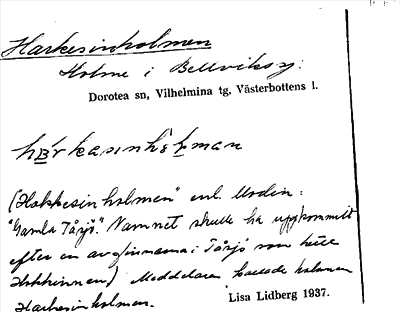 Harkesinholmen
Holme i Bellviksj:
Dorotea sn, Vilhelmina tg. Västerbottens l.
("Hakkesinholmen" enl. Modin:
"Gamla Tåsjö." Namnet skulle ha uppkommit
efter en av finnarna i Tåsjö som hette
Hakkinnen) Meddelaren kallade holmen
Harkesinholmen.
Lisa Lidberg 1937.